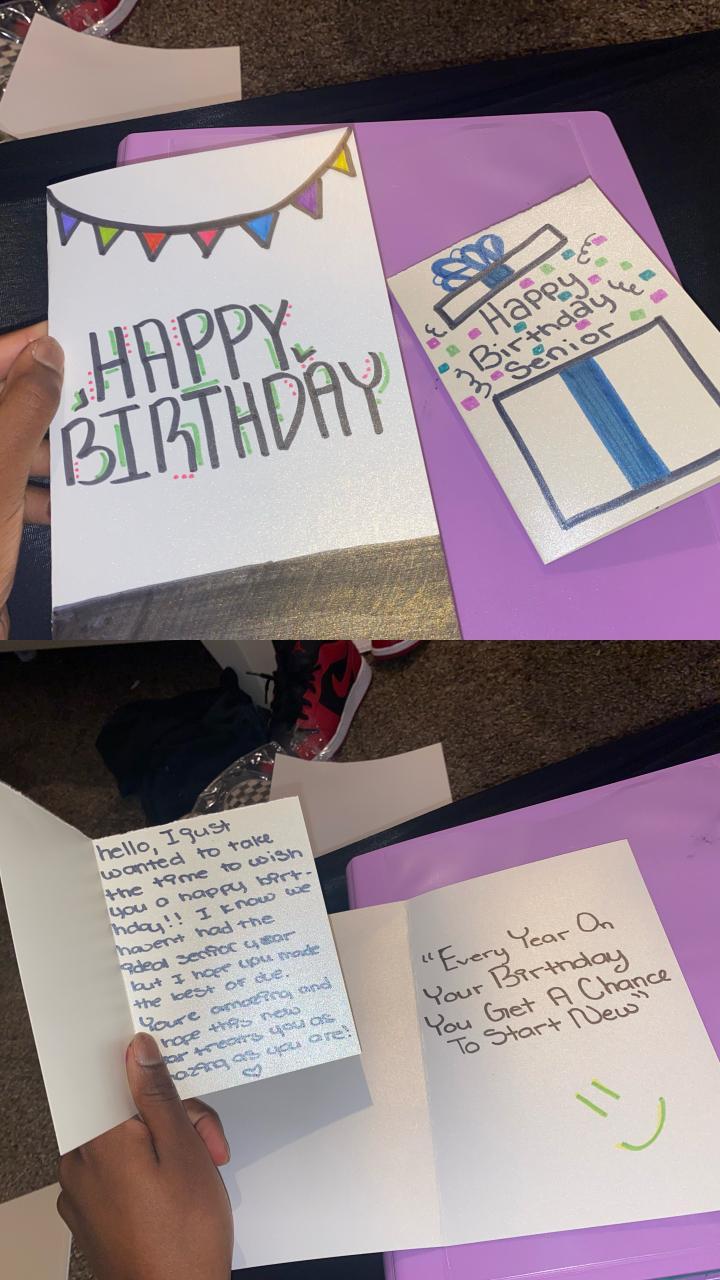 HAPPY
BIRTHDAY
Happy
Birthday
Senior
hello, I just
wanted to take
the time to wish
you a happy birt-
hday!! I know we
havent had the
ideal senior year
but I hope you made
the best of it.
Youre amazing and
hope this new
treats you as
as you are!
"Every Year On
Your Birthday
You Get A Chance
To Start New"